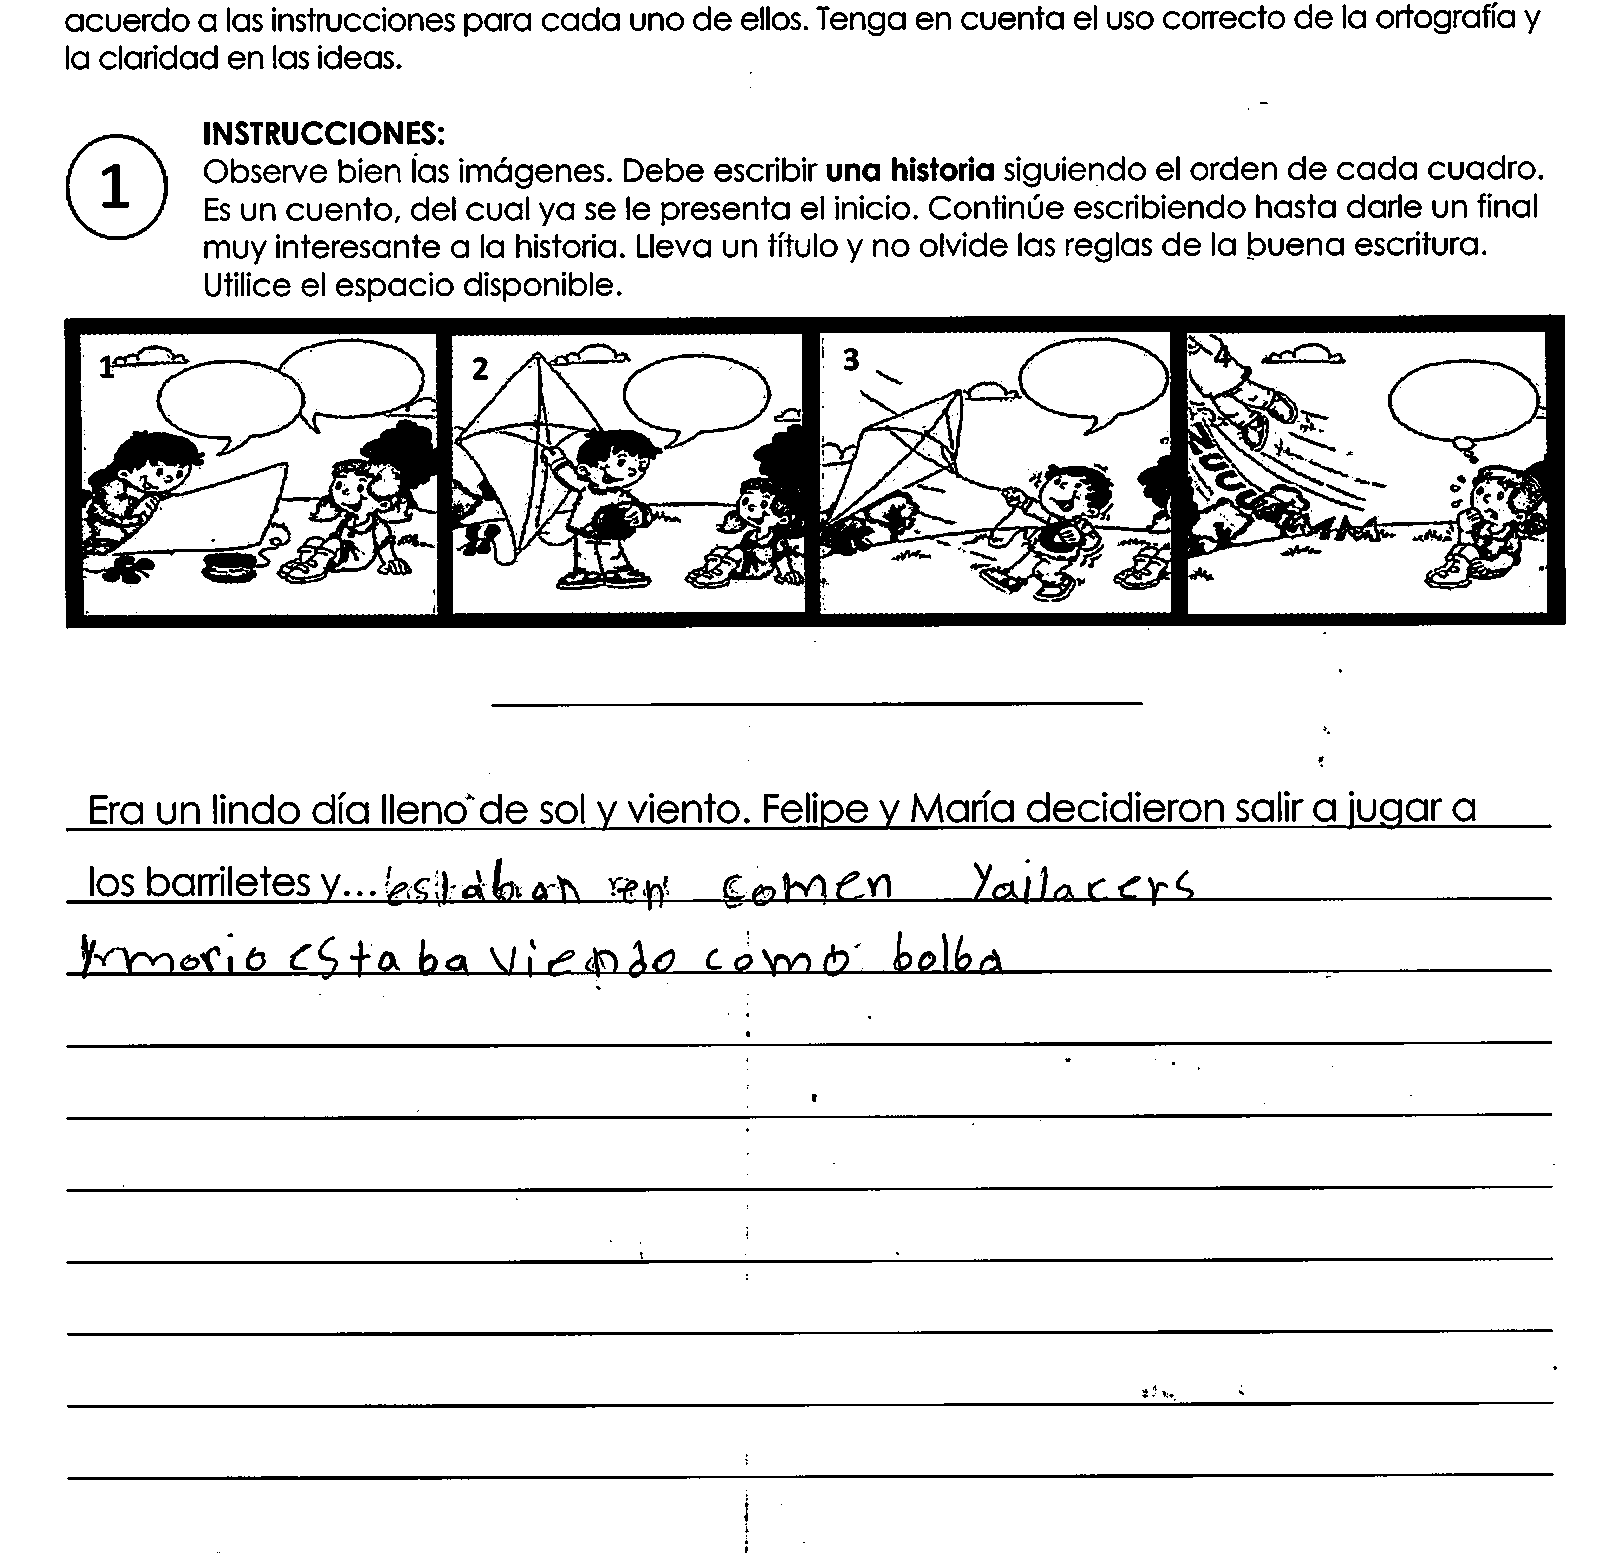 acuerdo a las instrucciones para cada uno de ellos. Tenga en cuenta el uso correcto de la ortografía y
la claridad en las ideas.
INSTRUCCIONES:
1
Observe bien las imágenes. Debe escribir una historia siguiendo el orden de cada cuadro.
Es un cuento, del cual ya se le presenta el inicio. Continúe escribiendo hasta darle un final
muy interesante a la historia. Lleva un título y no olvide las reglas de la buena escritura.
Utilice el espacio disponible.
1 2 3 4
ZUUUUM
Era un lindo día lleno de sol y viento. Felipe y María decidieron salir a jugar a
los barriletes y... estaban en comen
estaba viendo como bolba